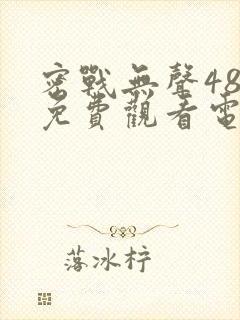 密戰無聲48
免費觀看電
落冰梓